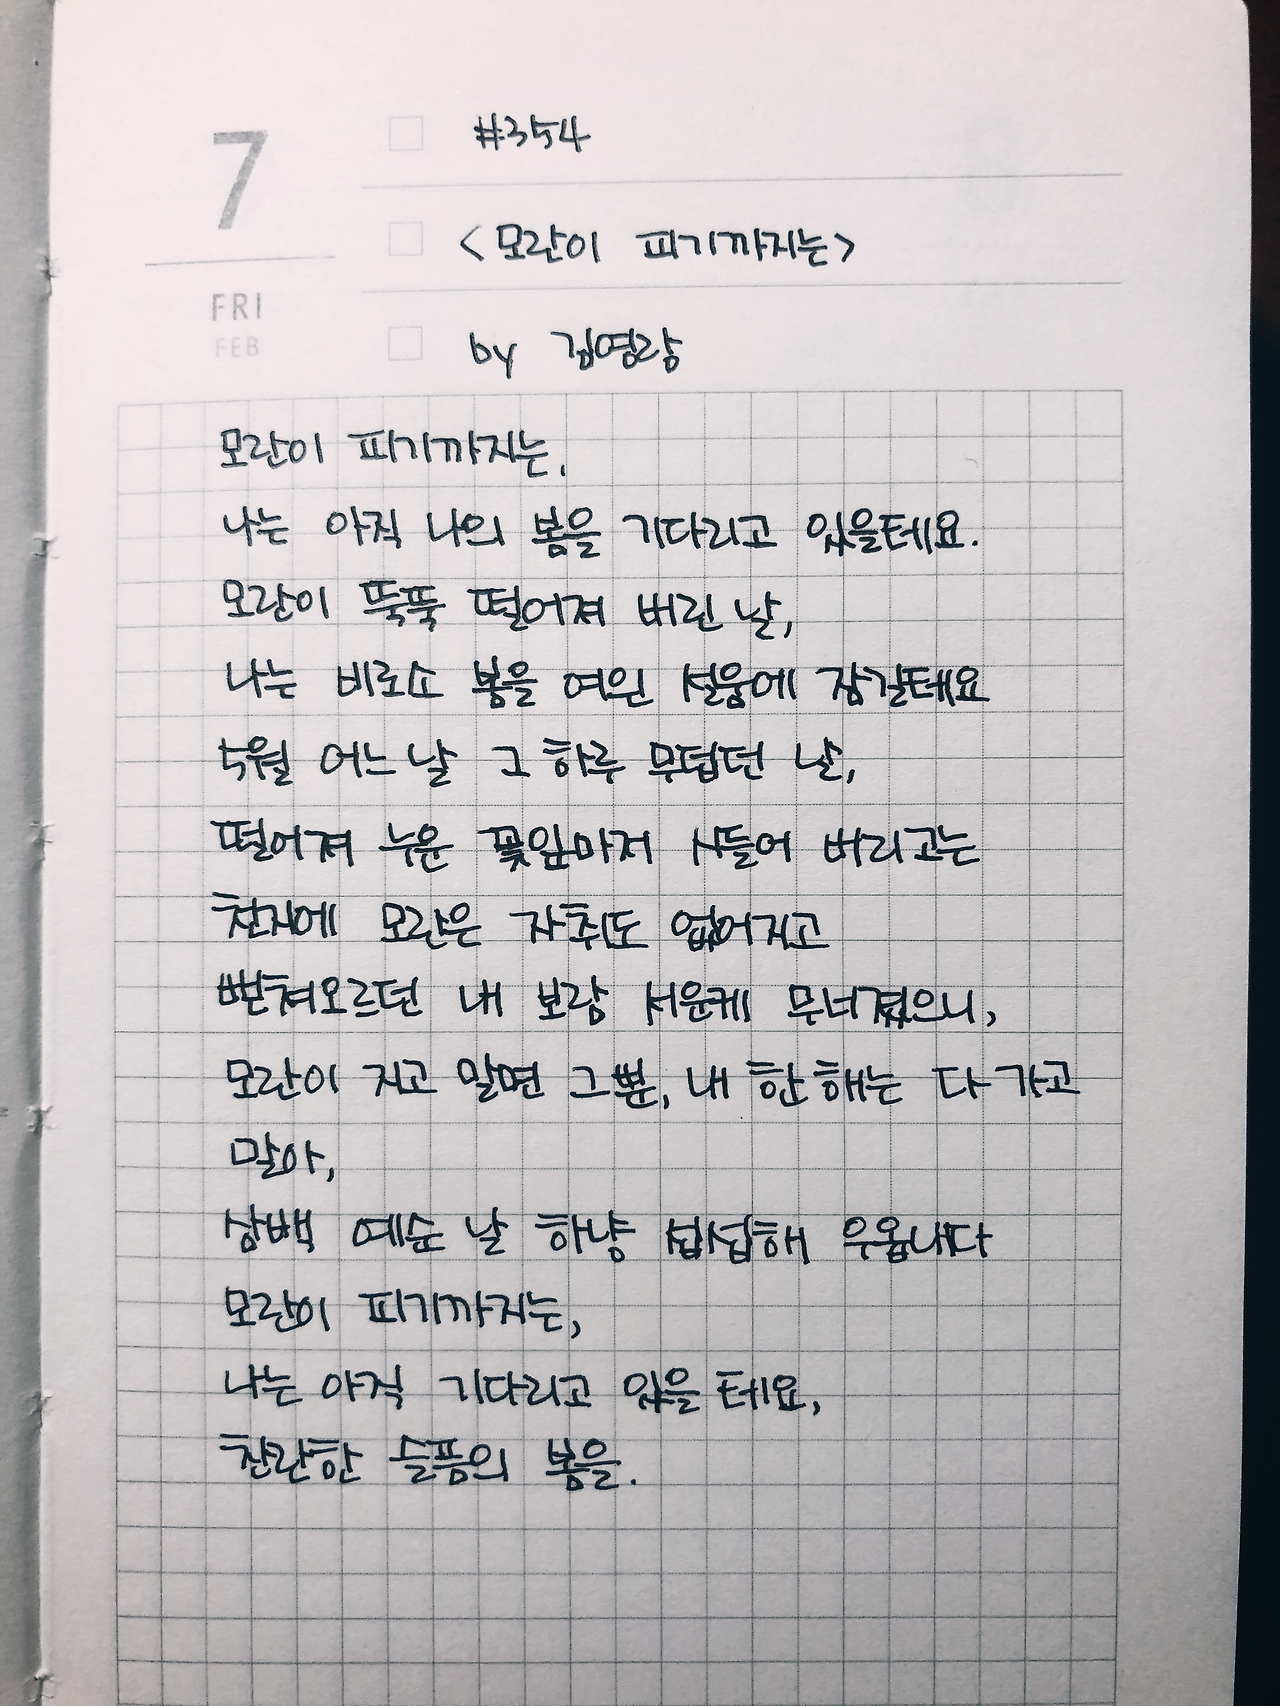 7
FRI
FEB
#354
<모란이 피기까지는>
by 김영랑
모란이 피기까지는,
나는 아직 나의 봄을 기다리고 있을테요.
모란이 뚝뚝 떨어져 버린 날,
나는 비로소 봄을 여읜 설움에 잠길테요
5월 어느 날 그 하루 무덥던 날,
떨어져 누운 꽃잎마저 시들어 버리고는
천지에 모란은 자취도 없어지고
뻗쳐오르던 내 보람 서운케 무너졌으니,
모란이 지고 말면 그뿐, 내 한 해는 다 가고
말아,
삼백 예순 날 하냥 섭섭해 우옵내다
모란이 피기까지는,
나는 아직 기다리고 있을 테요,
찬란한 슬픔의 봄을.